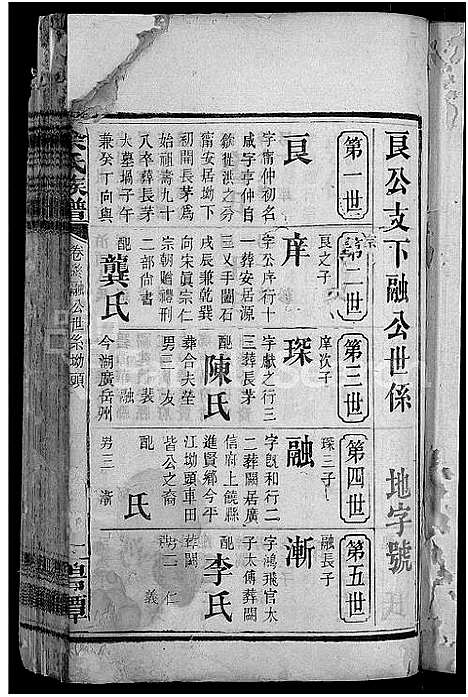 艮公支下融公世係
地字號
第一世
艮
字甯仲初名
咸字亨仲自
歙徙洪之分
甯安居坳下
初開長茅爲
始祖壽九十
八卒葬長茅
大墓塢子午
兼癸丁向與
第二世
艮之子
庠
字公序行十
一葬安居源
三乂手關石
戌辰兼乾巽
向宋眞宗仁
宗朝贈禮刑
二部尚書
配
龔氏
第三世
庠次子
琛
字獻之行三
三葬長茅
配
陳氏
葬合夫塋
男三 友
裴 融
今湖廣岳州
第四世
琛三子
融
字旣和行二
二葬關居廣
信府上饒縣
進賢鄉今平
江坳頭重田
皆公之裔
配
氏
男三 漸
第五世
融長子
漸
字鴻飛官太
子太傅葬關
配
李氏
葬關
男二 仁
義
氏族譜
融公世系坳頭
一